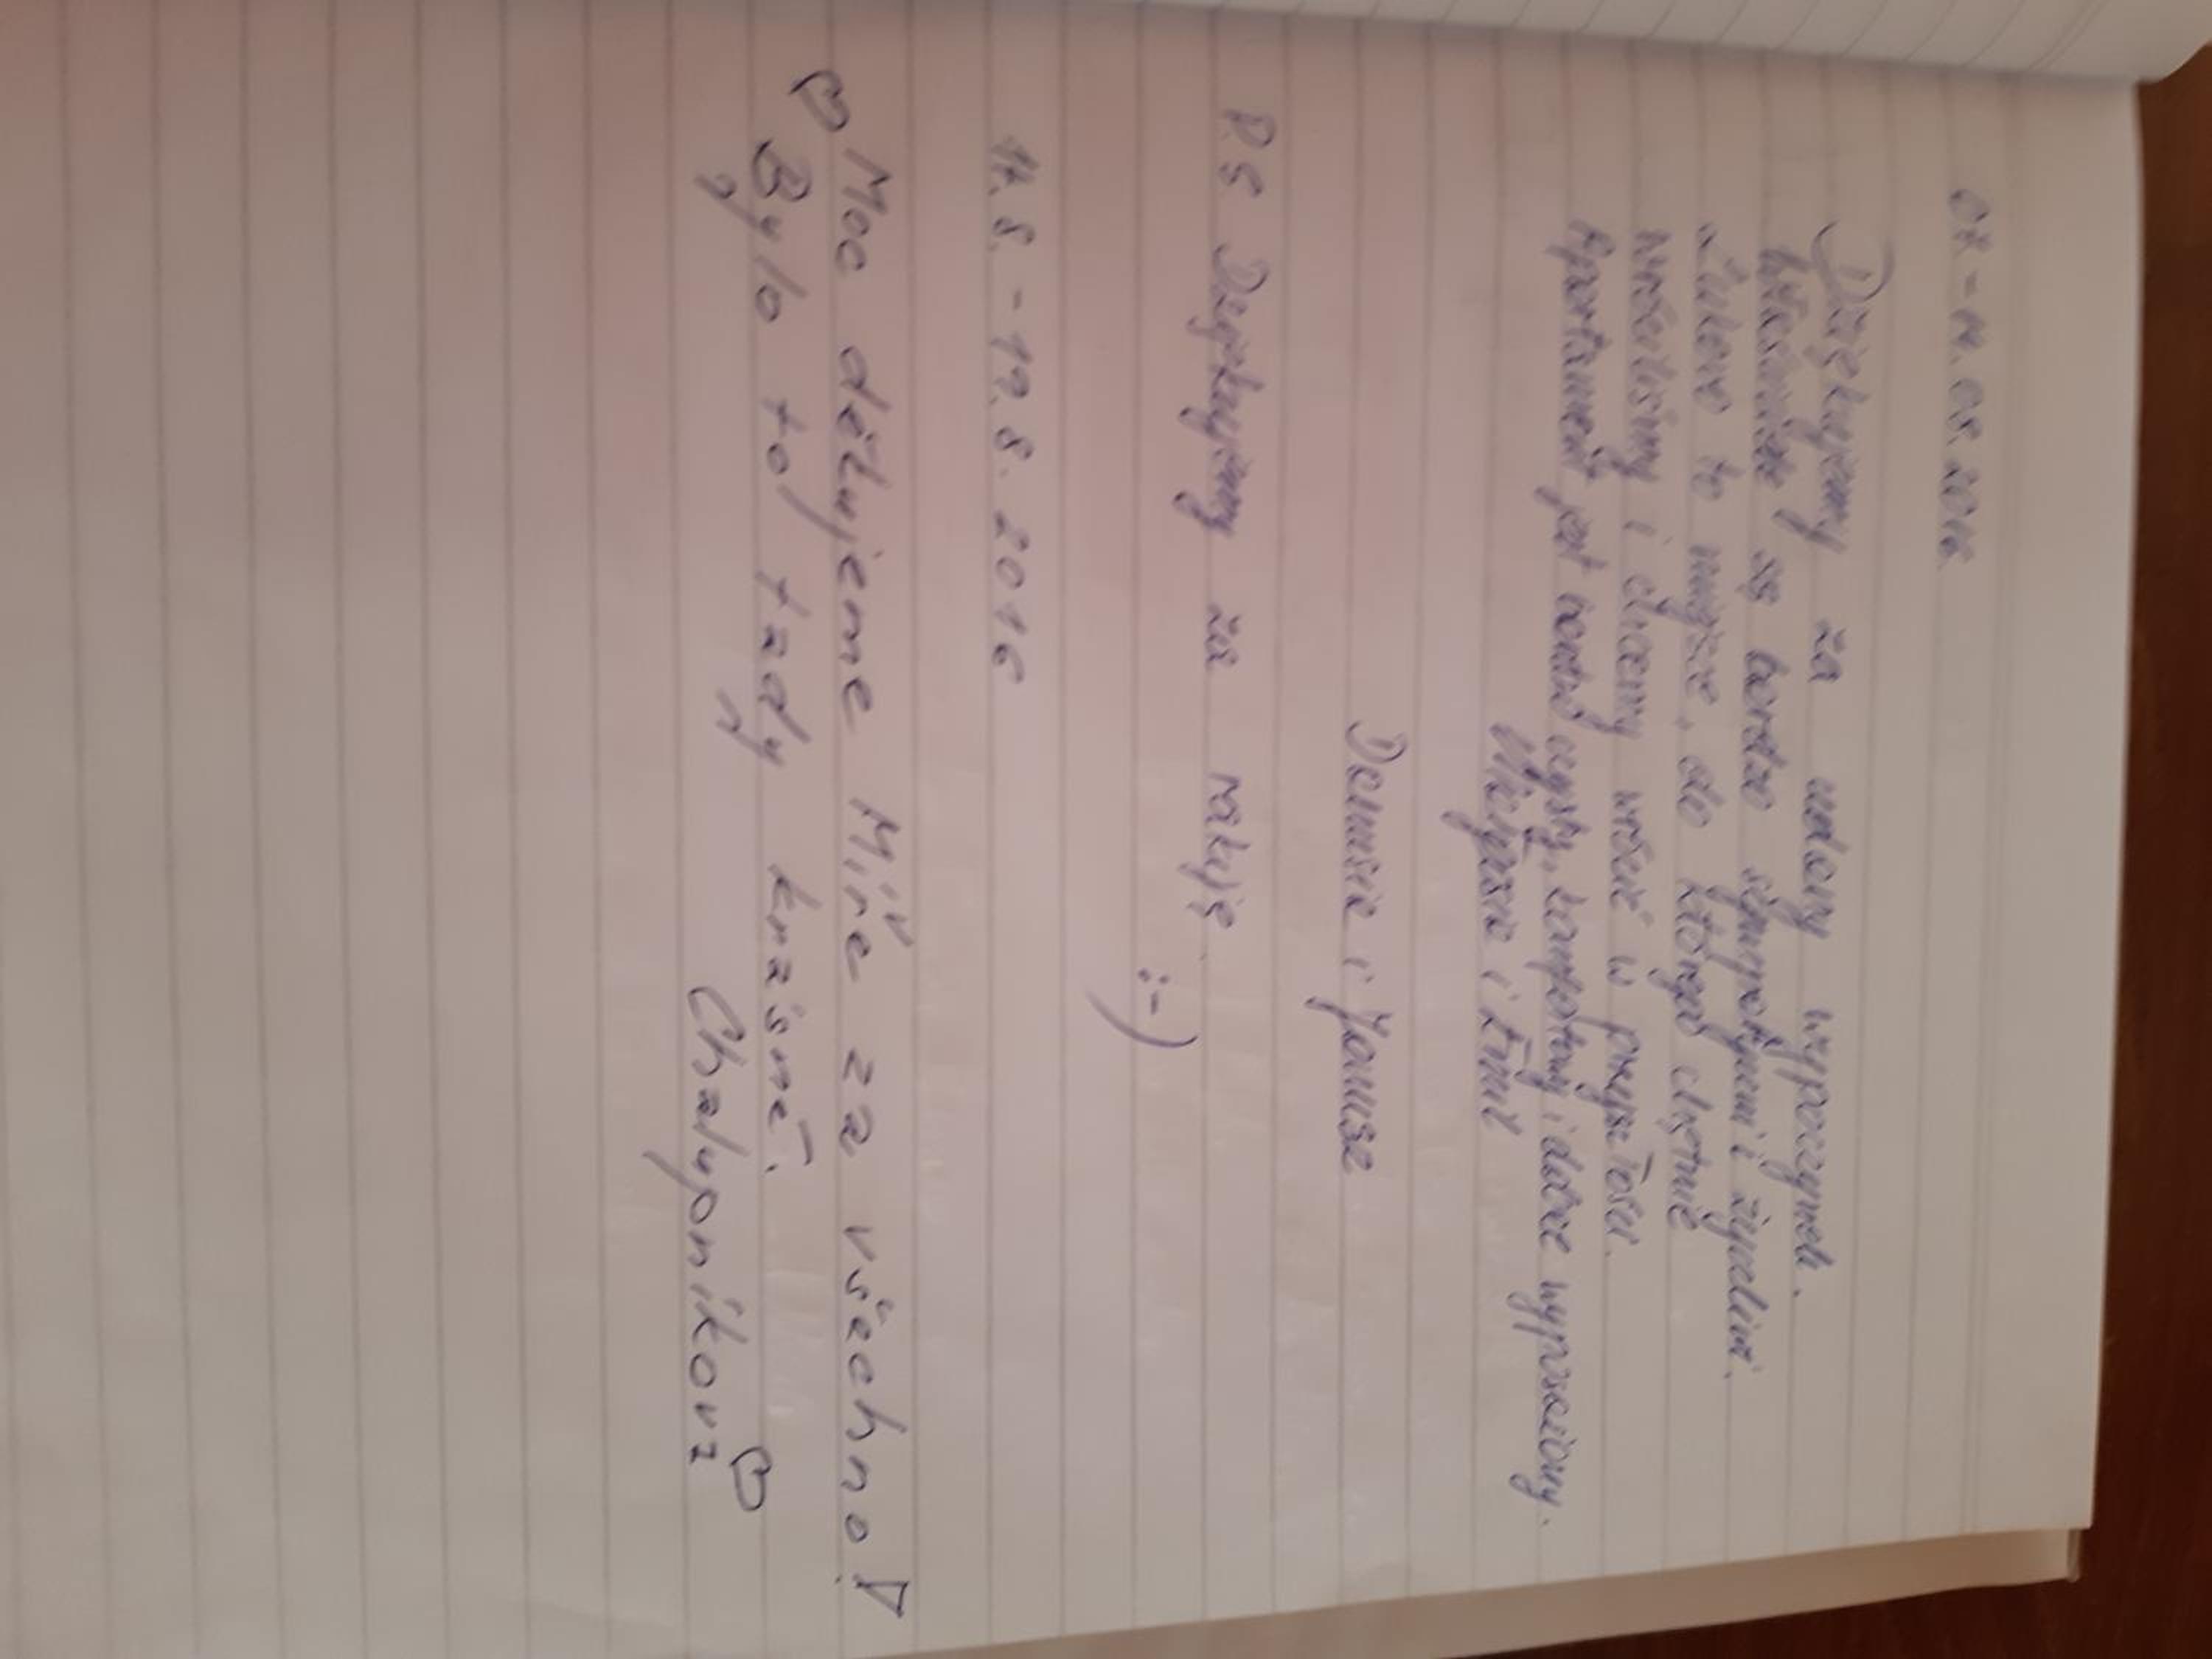 07-14.08.2016
Dziękujemy za udany wypoczynek.
Właściciele są bardzo sympatyczni i życzliwi.
to miejsce, do którego chętnie
wróciliśmy i chcemy wrócić w przyszłości.
Apartament jest bardzo czysty, komfortowy i dobrze wyposażony.
i Emil
Danusia i Janusz
P.S Dziękujemy za rakiję
:-)
14.8.-19.8.2016
Moc děkujeme Miře za všechno!
Bylo to tady krásné.
Chalupníkovi